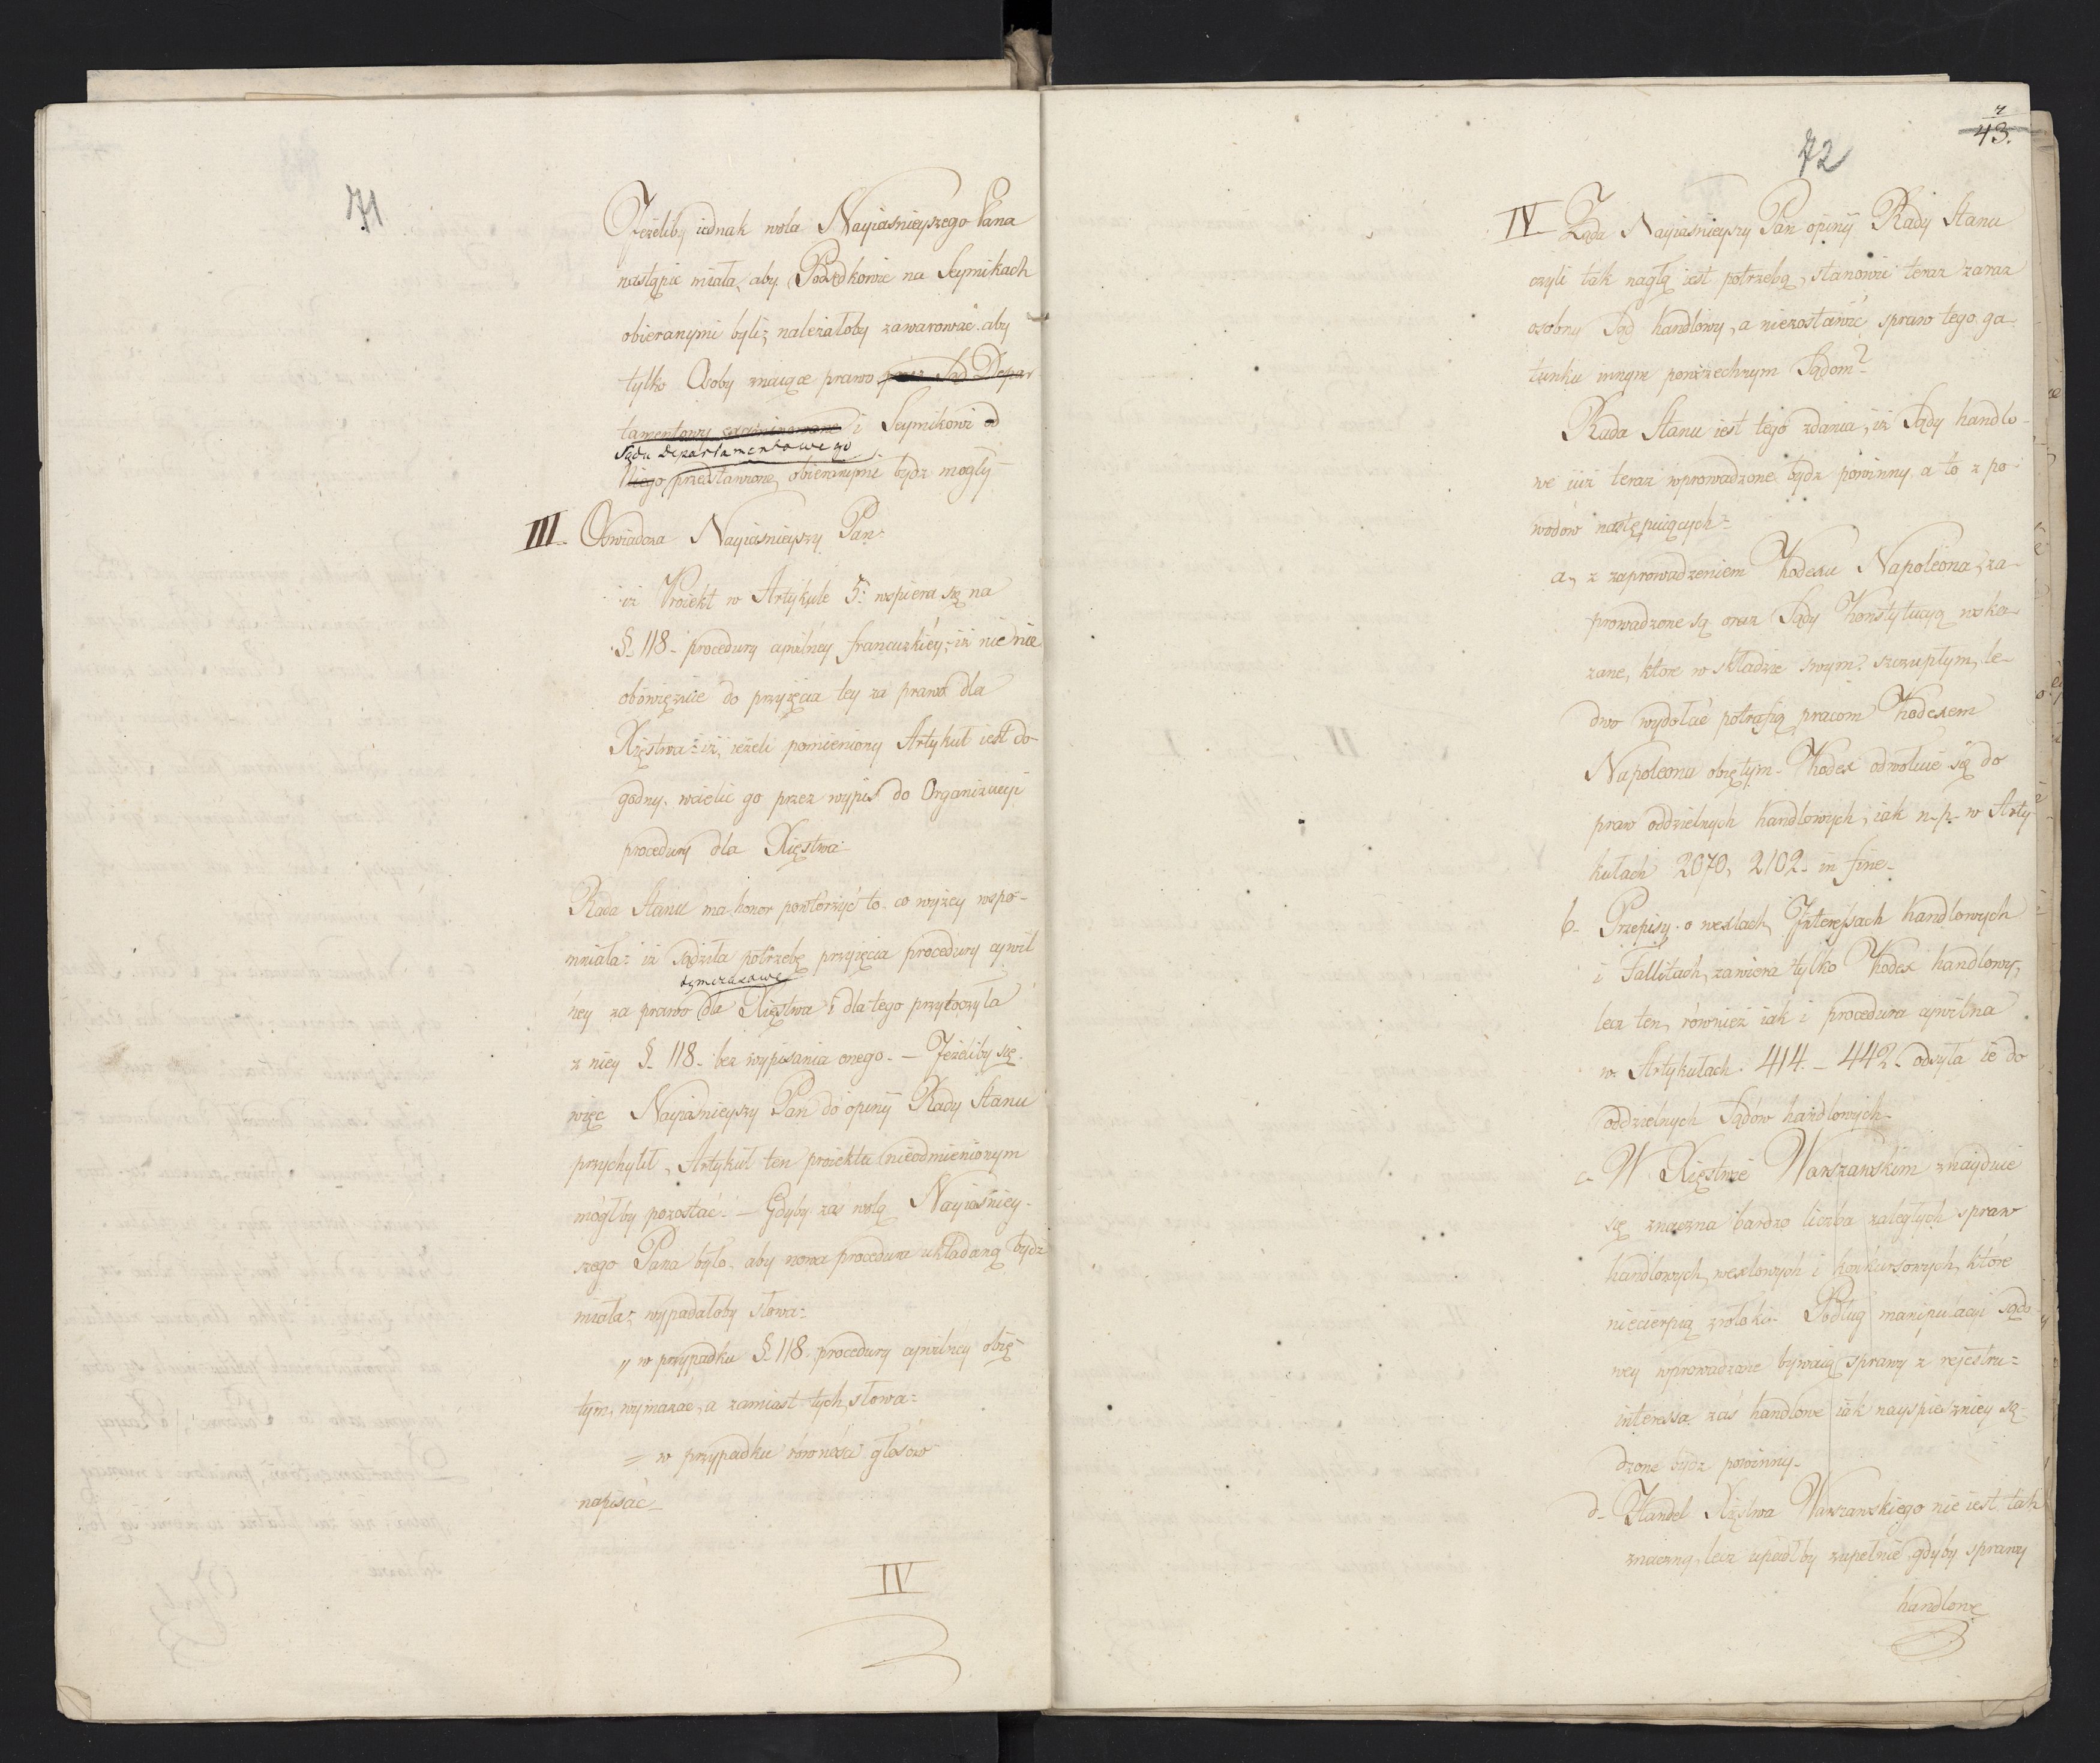 71
Jeżeliby iednak wola Nayiaśnieyszego Pana
nastąpić miała, aby Podsędkowie na Seymikach
obieranymi byli; należałoby zawarować aby
tylko Osoby maiące prawo przez Sąd Depar
tamentowy examinowane i Seymikowi od
Sądu Departamentowego
Niego przedstawione, obieranymi bydź mogły
III. Oświadcza Nayiaśnieyszy Pan:
iż Proiekt w Artykule 5: wspiera się na
§. 118. procedury cywilney francuzkiéy; iż nic nie
obowięzuie do przyięcia tey za prawo dla
Xięstwa: iż, ieżeli pomieniony Artykuł iest do-
godny, wcielić go przez wypis do Organizacyi
procedury dla Xięstwa
Rada Stanu ma honor powtorzyć to, co wyżey wspo-
mniała: iż sądziła potrzebę przyięcia procedury cywil
tymczasowe
ney za prawo dla Xięstwa i dla tego przytoczyła
z niey §. 118. bez wypisania onego. — Jeżeliby się
więc Nayiaśnieyszy Pan do opinij Rady Stanu
przychylił, Artykuł ten proiektu nieodmienionym
mógłby pozostać. — Gdyby zaś wolą Nayiaśniey-
szego Pana było, aby nowa procedura układaną bydź
miała; wypadałoby słowa:
„ w przypadku §. 118. procedury cywilney obię
tym, wymazać, a zamiast tych słowa:
= w przypadku równości głosów
napisać
IV
72
43.
IV Żąda Nayiaśnieyszy Pan opinij Rady Stanu
czyli tak nagłą iest potrzebą, stanowić teraz zaraz
osobny Sąd handlowy, a niezostawić spraw tego ga-
tunku innym powszechnym Sądom?
Rada Stanu iest tego zdania, iż Sądy handlo-
we iuż teraz wprowadzone bydź powinny, a to z po-
wodów następuiących:
a, z zaprowadzeniem Kodexu Napoleona, za-
prowadzone są oraz Sądy Konstytucyą wska-
zane, które w składzie swym szczupłym, le-
dwo wydołać potrafią pracom Kodexem
Napoleona obiętym. Kodex odwołuie się do
praw oddzielnych handlowych, iak n. p. w Arty
kułach 2070, 2102. in fine.
b. Przepisy o wexlach, Interessach handlowych
i Fallitach, zawiera tylko Kodex handlowy,
lecz ten, równiez iak i procedura cywilna
w Artykułach 414. — 442. odsyła ie do
oddzielnych Sądów handlowych.
c. W Xięstwie Warszawskim znayduie
się znaczna bardzo liczba zaległych spraw
handlowych, wexlowych i konkursowych, które
niecierpią zwłoki. Podług manipulacyi sądo
wey wprowadzone bywaią sprawy z rejestru:
interessa zaś handlowe iak nayspieszniey są-
dzone bydź powinny.
d. Handel Xięstwa Warszawskiego nie iest tak
znaczny, lecz upadłby zupełnie, gdyby sprawy
handlowe